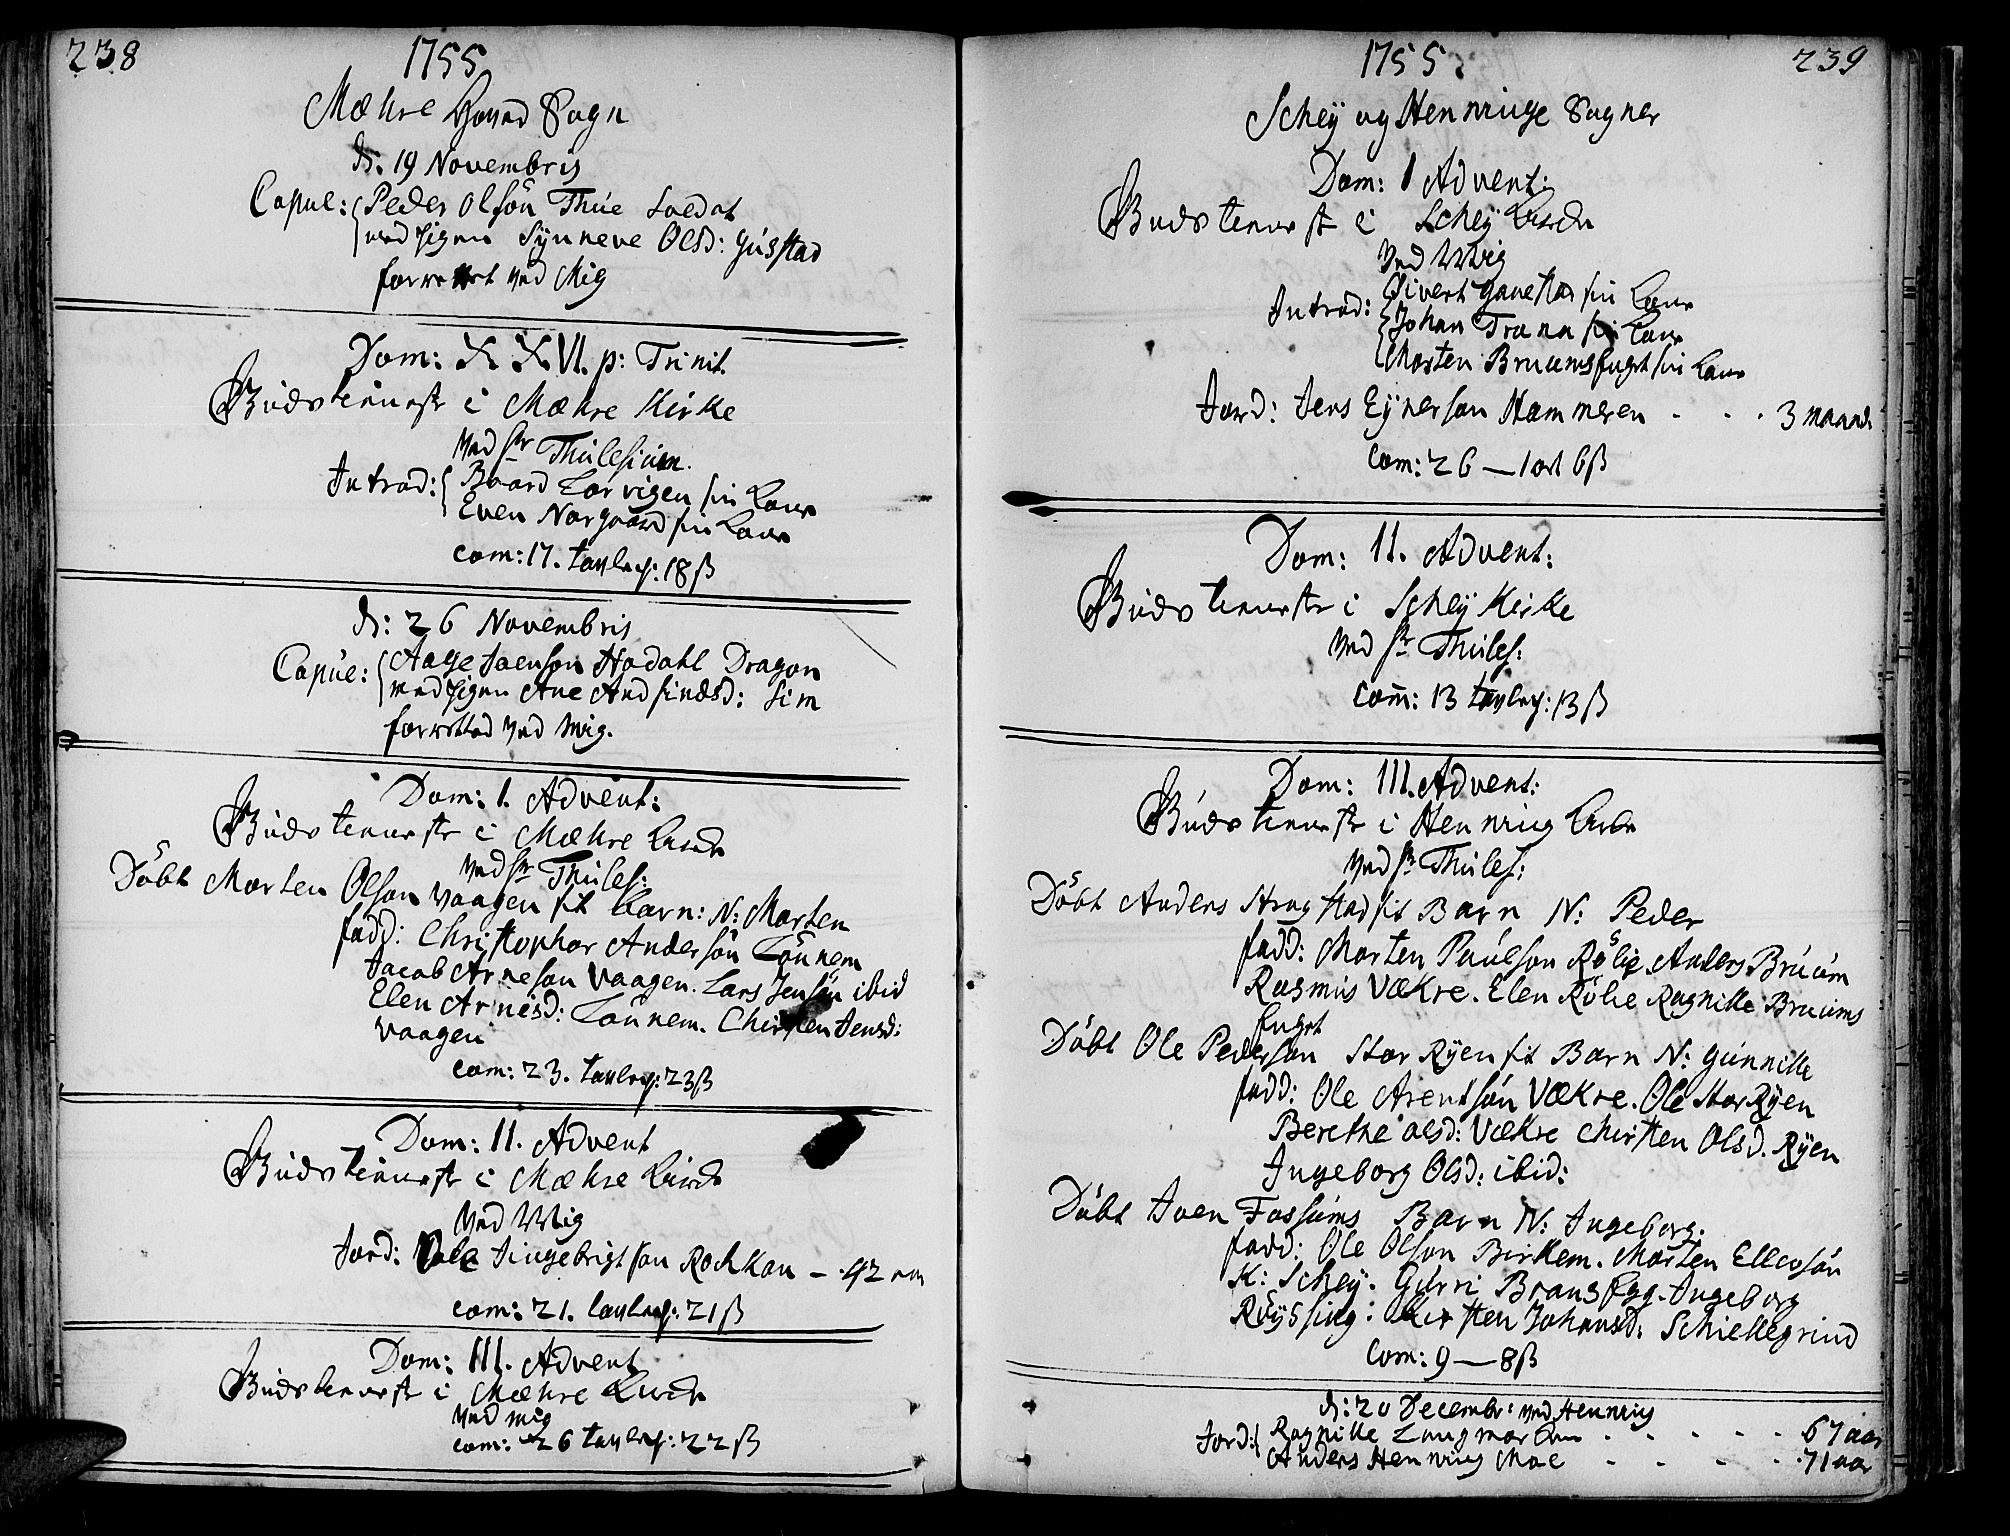 238
1755
Mæhre Hoved Sogn
d: 19 Novembris
Copul: Peder Olsøn Thùe Soldat
med Pigen Synneve Olsd: Gùsstad
forrettet ved Mig
Dom: XXVI. p: Trinit.
Gùds tieniste i Mæhre Kirke
ved Sr Thùlesium.
Introd: Baard Lorvigen sin Kone
Even Norgaard sin Kone
com: 17. tavlep: 18 ß
d: 26 Novembris
Copùl: Aage Joenson Hodahl Dragon
med Pigen Ane Andfindsd: Sim
forretted ved mig.
Dom: I. Advent:
Gùds tieniste i Mæhre Kirche
ved Sr Thùles:
Döbt Morten Olson Vaagen sit barn: N: Morten
fadd: Christophor Andersön Lönnem
Jacob Arneson Vaagen. Lars Jensön ibid
Elen Arnesd: Lönnem. Chirsten Jensd:
Vaagen
com: 23. tavlep: 23 ß
Dom: II. Advent
Gùds tieniste i Mæhre Kirche
ved Mig
Jord: Ole Jngebrigtson Rochkon – 42 aar
com: 21. tavlep: 21 ß
Dom: III. Advent
Gùds tieniste i Mæhre Kirche
ved mig
com: 26 tavlep: 22 ß
1755.
239
Schey og Henninge Sogner
Dom: I Advent:
Gùds tieniste i Schey Kirche
ved Mig
Introd: Sivert Gavestad sin Kone
Johan Trana sin Kone
Morten Bruumsfuget sin Kone
Jord: Jens Eynerson Hammeren . . . 3 maaned
Com: 26 — 1 ort 6 ß
Dom: II. Advent:
Gùds tieniste i Schey Kirke
ved Sr Thùles:
Com: 13 tavlep: 13 ß
Dom: III. Advent:
Gùds tieniste i Henning Kirke
ved Sr Thùles:
Döbt Anders Arngstad sit Barn N: Peder
fadd: Morten Paùlson Rölie Anders Brùum
Rasmùs Vækre. Elen Rölie Ragnille Bruums
fuget
Döbt Ole Pederson Stor Ryen sit Barn N: Gùnnille
fadd: Ole Arentsön Vækre. Ole Stor Ryen
Berethe Olsd: Vækre Chirsten Olsd. Ryen
Jngeborg Olsd: ibid:
Döbt Joen Fossùms Barn N: Jngeborg.
fadd: Ole Olson Birkem. Morten Ellevsön
K: Schey. Gùrri Bransfygg. Jngeborg
Röyssing: Kirsten Johansd: Schiellegrind
Com: 9 — 8 ß
d: 20 Decembr: ved Henning
Jord: Ragnille Langmarken . . . . . 67 aar
Anders Henning Moe . . . . 71 aar